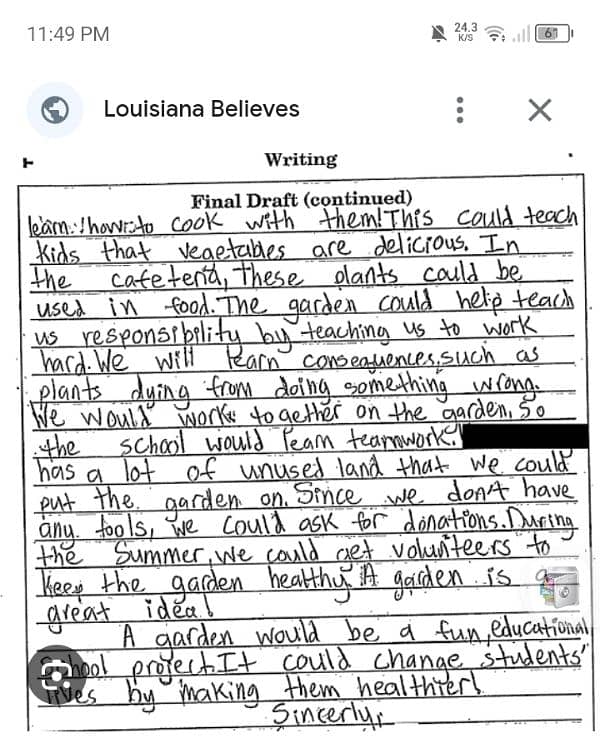 11:49 PM
24.3
K/S
61
Louisiana Believes
Writing
Final Draft (continued)
learn how to cook with them! This could teach
kids that vegetables are delicious. In
the cafeteria, these plants could be
used in food. The garden could help teach
us responsibility by teaching us to work
hard. We will learn consequences, such as
plants dying from doing something wrong.
We would work together on the garden, so
the school would learn teamwork!
has a lot of unused land that we could
put the garden on. Since we don't have
any tools, we could ask for donations. During
the Summer, we could get volunteers to
keep the garden healthy. A garden is a
great idea!
A garden would be a fun, educational
school project. It could change students'
lives by making them healthier!
Sincerly,